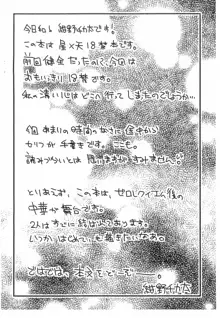 今日和。紺野千九六です。
この本は星×天18禁本です。
前回健全だったので、今回は
おもいっきり18禁です。
私の清い心はどこへ行ってしまったのでしょうか…
あまりの時間のなさに途中から
セリフが手書きです。
読みづらいとは思いますがすみません。
とりあえず、この本は、ゼロレクイエム後の
中華が舞台です。
2人はすでに結ばれております。
いつかはじめて、も描きたいなあ。
ではでは。本文をどーぞー。